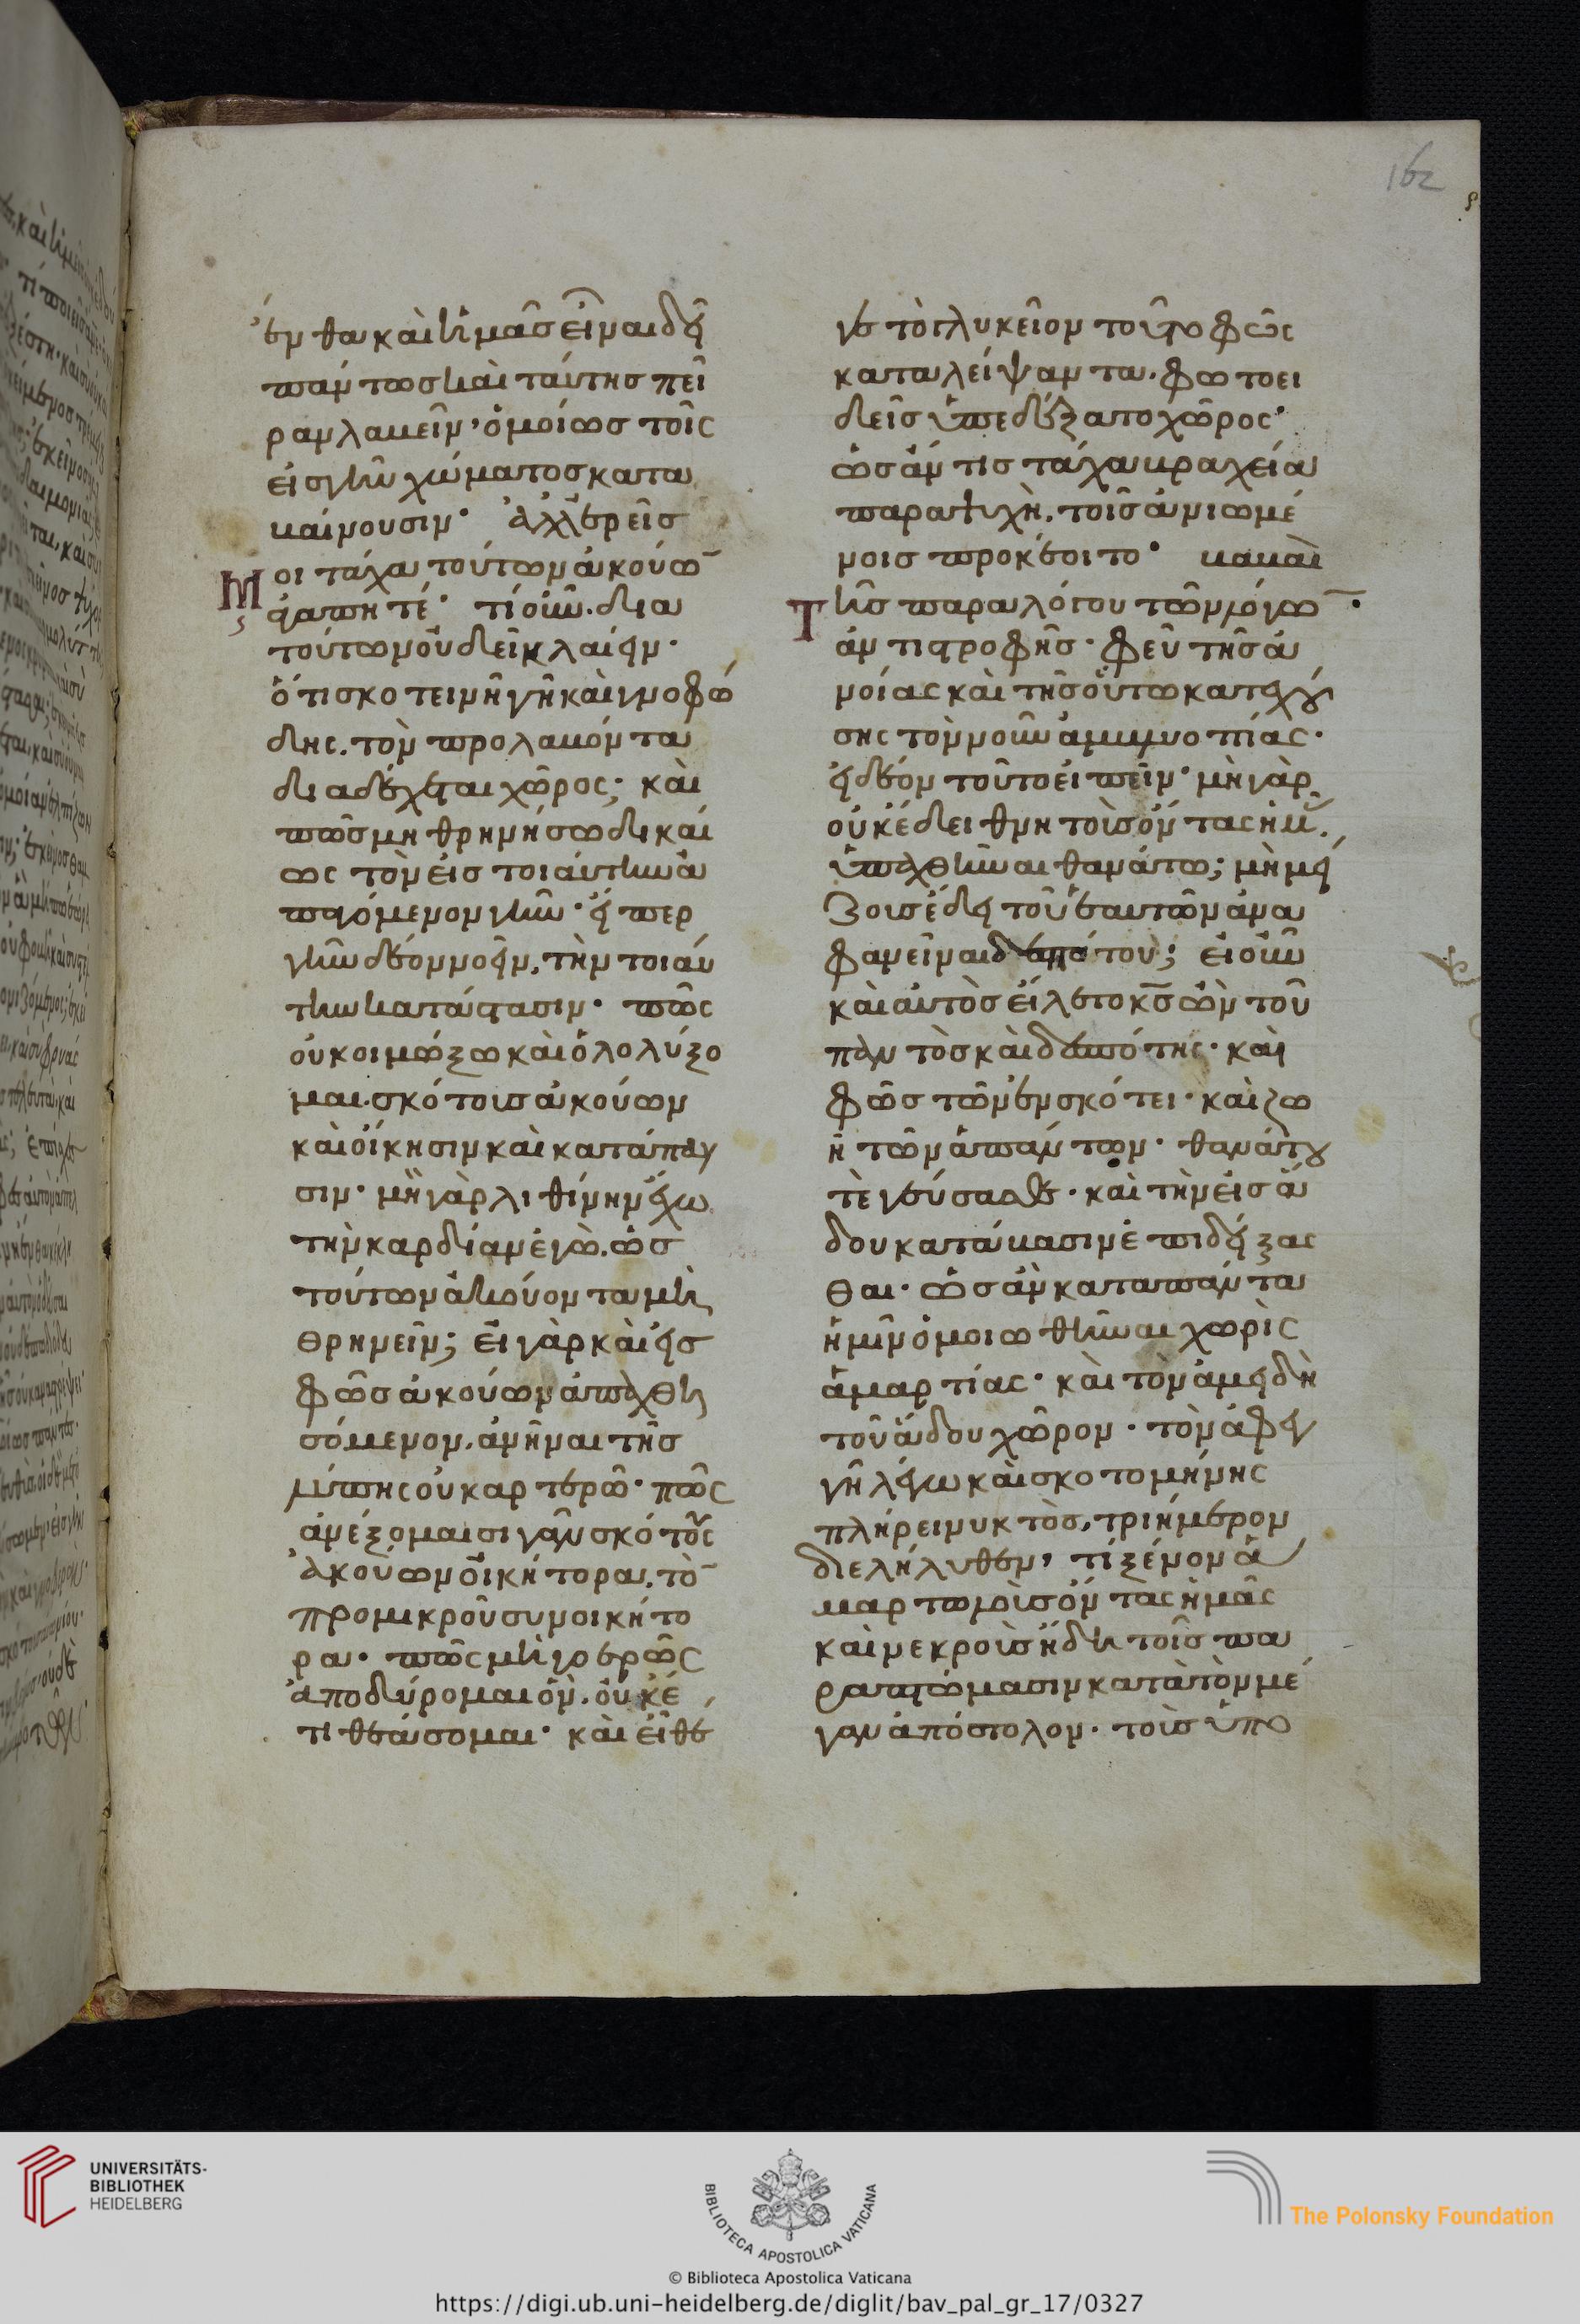 162
ἔνθα καὶ ἡμᾶς εἶναι δεῖ
πάντως καὶ ταύτης πεῖ
ραν λαβεῖν, ὁμοίως τοῖς
εἰς γῆν χώματος κατα
βαίνουσιν· ἀλλ' ἐρεῖς
Μοι τάχα τούτων ἀκούω̅
ἀγαπητέ· τί οὖν. δια
τούτων οὐ δεῖ κλαίειν·
ὅτι σκοτεινὴ γῆ καὶ γνοφώ
δης. τὸν προλαβόντα
διαδέχεται χῶρος; καὶ
πῶς μὴ θρηνήσω δικαί
ως τὸν εἰς τοιαύτην ἀ
παγόμενον γῆν· εἴπερ
γῆν δέον νοεῖν, τὴν τοιαύ
την κατάστασιν· πῶς
οὐκ οἰμώξω καὶ ὀλολύξο
μαι. σκότους ἀκούων
καὶ οἴκησιν καὶ κατάπαυ
σιν· μὴ γὰρ λιθίνην ἔχω
τὴν καρδίαν ἐγώ. ὡς
τούτων ἀκούοντα μὴ
θρηνεῖν; εἰ γὰρ καὶ εἰς
φῶς ἀκούων ἀπαχθη
σόμενον. ἀνῆναι τῆς
λύπης οὐ καρτερῶ· πῶς
ἀνέξομαι σιγᾶν σκότους
ἀκούων οἰκήτορα. τὸ̅
προμικροῦ συνοικήτο
ρα· πῶς μὴ γοερῶς
ἀποδύρομαι ὃν. οὐκέ
τι θεάσομαι· καὶ εἴθε
γε τὸ γλυκεῖον τοῦτο φῶς
καταλείψαντα. φωτοει
δεῖς ὑπεδέξατο χῶρος·
ὡς ἄν τις τάχα βραχεῖα
παραψυχὴ. τοῖς ἀνιωμέ
νοις προκέοιτο· βαβαὶ
Τῆς παραλόγου τῶν λόγω̅·
ἀντιστροφῆς· φεῦ τῆς ἀ
νοίας καὶ τῆς οὕτω κατεχού
σης τὸν νοῦν ἀμβλυοπίας·
ἡδέον τοῦτο εἰπεῖν· μὴ γὰρ
οὐκ ἔδει θνητοὺς ὄντας ἡμ̅.
ὑπαχθῆναι θανάτω; μὴ μεί
ζους ἔδει τοῦ ἑαυτῶν ἀνα
φανεῖναι δεσπότου; εἰ οὖν
καὶ αὐτὸς εἵλετο κ̅ς ὢν τοῦ
παντὸς καὶ δεσπότης· καὶ
φῶς τῶν ἐν σκότει· καὶ ζω
ὴ τῶν ἁπάντων· θανάτου
τὲ γεύσασθαι· καὶ τὴν εἰς ἅ
δου κατάβασιν ἐπιδείξας
θαι· ὡς ἂν κατα πάντα
ἡμῖν ὁμοιωθῆναι χωρὶς
ἁμαρτίας· καὶ τὸν ἀμειδῆ
τοῦ ἅδου χῶρον· τὸν ἀφεγ
γῆ λέγω καὶ σκοτομήνης
πλήρει νυκτὸς, τριήμερον
διελήλυθεν, τί ξένον ἁ
μαρτωλοὺς ὄντας ἡμᾶς
καὶ νεκροὺς ἤδη τοῖς πα
ραπτώμασιν κατὰ τὸν μέ
γαν ἀπόστολον. τοὺς ὑπο
UNIVERSITÄTS-
BIBLIOTHEK
HEIDELBERG
BIBLIOTECA APOSTOLICA VATICANA
The Polonsky Foundation
© Biblioteca Apostolica Vaticana
https://digi.ub.uni-heidelberg.de/diglit/bav_pal_gr_17/0327